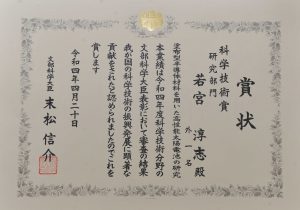 賞状
科学技術賞
研究部門
若宮 淳志 殿
外一名
塗布型半導体材料を用いた高性能太陽電池の研究
本業績は令和四年度科学技術分野の
文部科学大臣表彰において審査の結果
我が国の科学技術の振興発展に顕著な
貢献をされたと認められましたのでこれを
賞します
令和四年四月二十日
文部科学大臣 末松信介